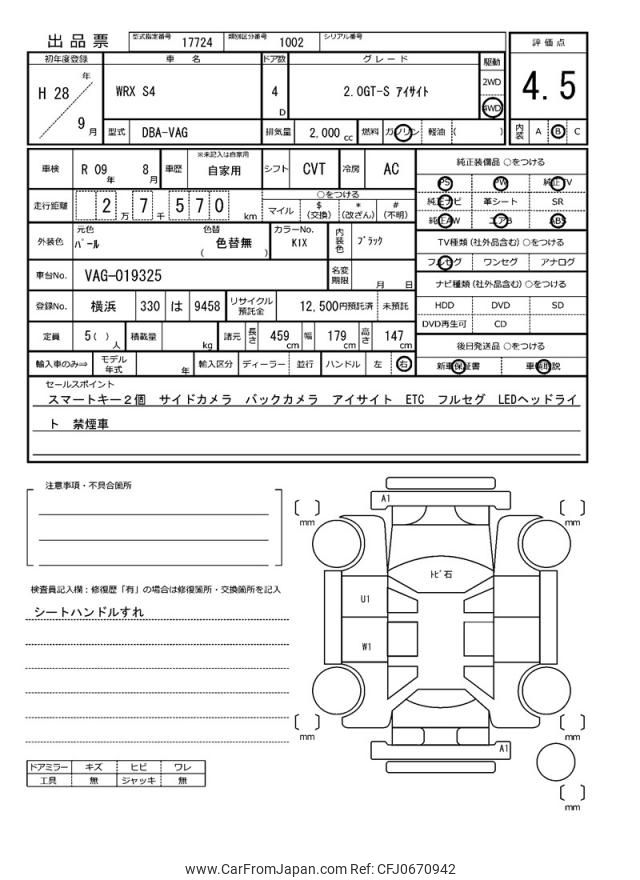 出品票 型式指定番号 17724 類別区分番号 1002 シリアル番号
初年度登録 車名 ドア数 グレード 駆動 評価点
H 28 年 9 月 WRX S4 4 D 2.0GT-S アイサイト 2WD 4WD 4.5
型式 DBA-VAG 排気量 2,000 cc 燃料 ガソリン 軽油 ( ) 内装 A B C
車検 R 09 年 8 月 車歴 ※未記入は自家用 自家用 シフト CVT 冷房 AC
純正装備品 ○をつける
PS PW 純正TV
走行距離 2 万 7 千 5 7 0 km ○をつける
マイル $ (交換) * (改ざん) # (不明)
純正ナビ 革シート SR
純正AW エアB ABS
外装色 元色 パール 色替 ( 色替無 ) カラーNo. K1X 内装色 ブラック
TV種類 (社外品含む) ○をつける
フルセグ ワンセグ アナログ
車台No. VAG-019325 名変期限 月 日
ナビ種類 (社外品含む) ○をつける
HDD DVD SD
DVD再生可 CD
登録No. 横浜 330 は 9458 リサイクル預託金 12,500円預託済 未預託
定員 5( ) 人 積載量 kg 諸元 長さ 459 cm 幅 179 cm 高さ 147 cm
後日発送品 ○をつける
新車保証書 車輌取説
輸入車のみ⇒ モデル年式 年 輸入区分 ディーラー 並行 ハンドル 左 右
セールスポイント
スマートキー2個 サイドカメラ バックカメラ アイサイト ETC フルセグ LEDヘッドライ
ト 禁煙車
注意事項・不具合箇所
検査員記入欄:修復歴「有」の場合は修復箇所・交換箇所を記入
シートハンドルすれ
ドアミラー キズ ヒビ ワレ
工具 無 ジャッキ 無
A1
mm
mm
トビ石
U1
W1
mm
mm
A1
mm
www.CarFromJapan.com Ref: CFJ0670942